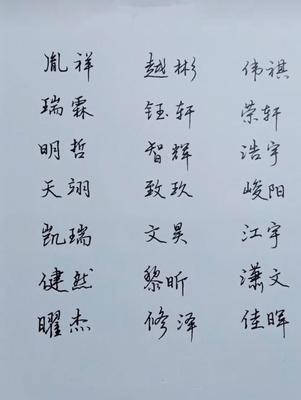 胤祥 越彬 伟祺
瑞霖 钰轩 荣轩
明哲 智辉 浩宇
天翊 致玖 峻阳
凯瑞 文昊 江宇
健然 黎昕 潇文
曜杰 修泽 佳晖